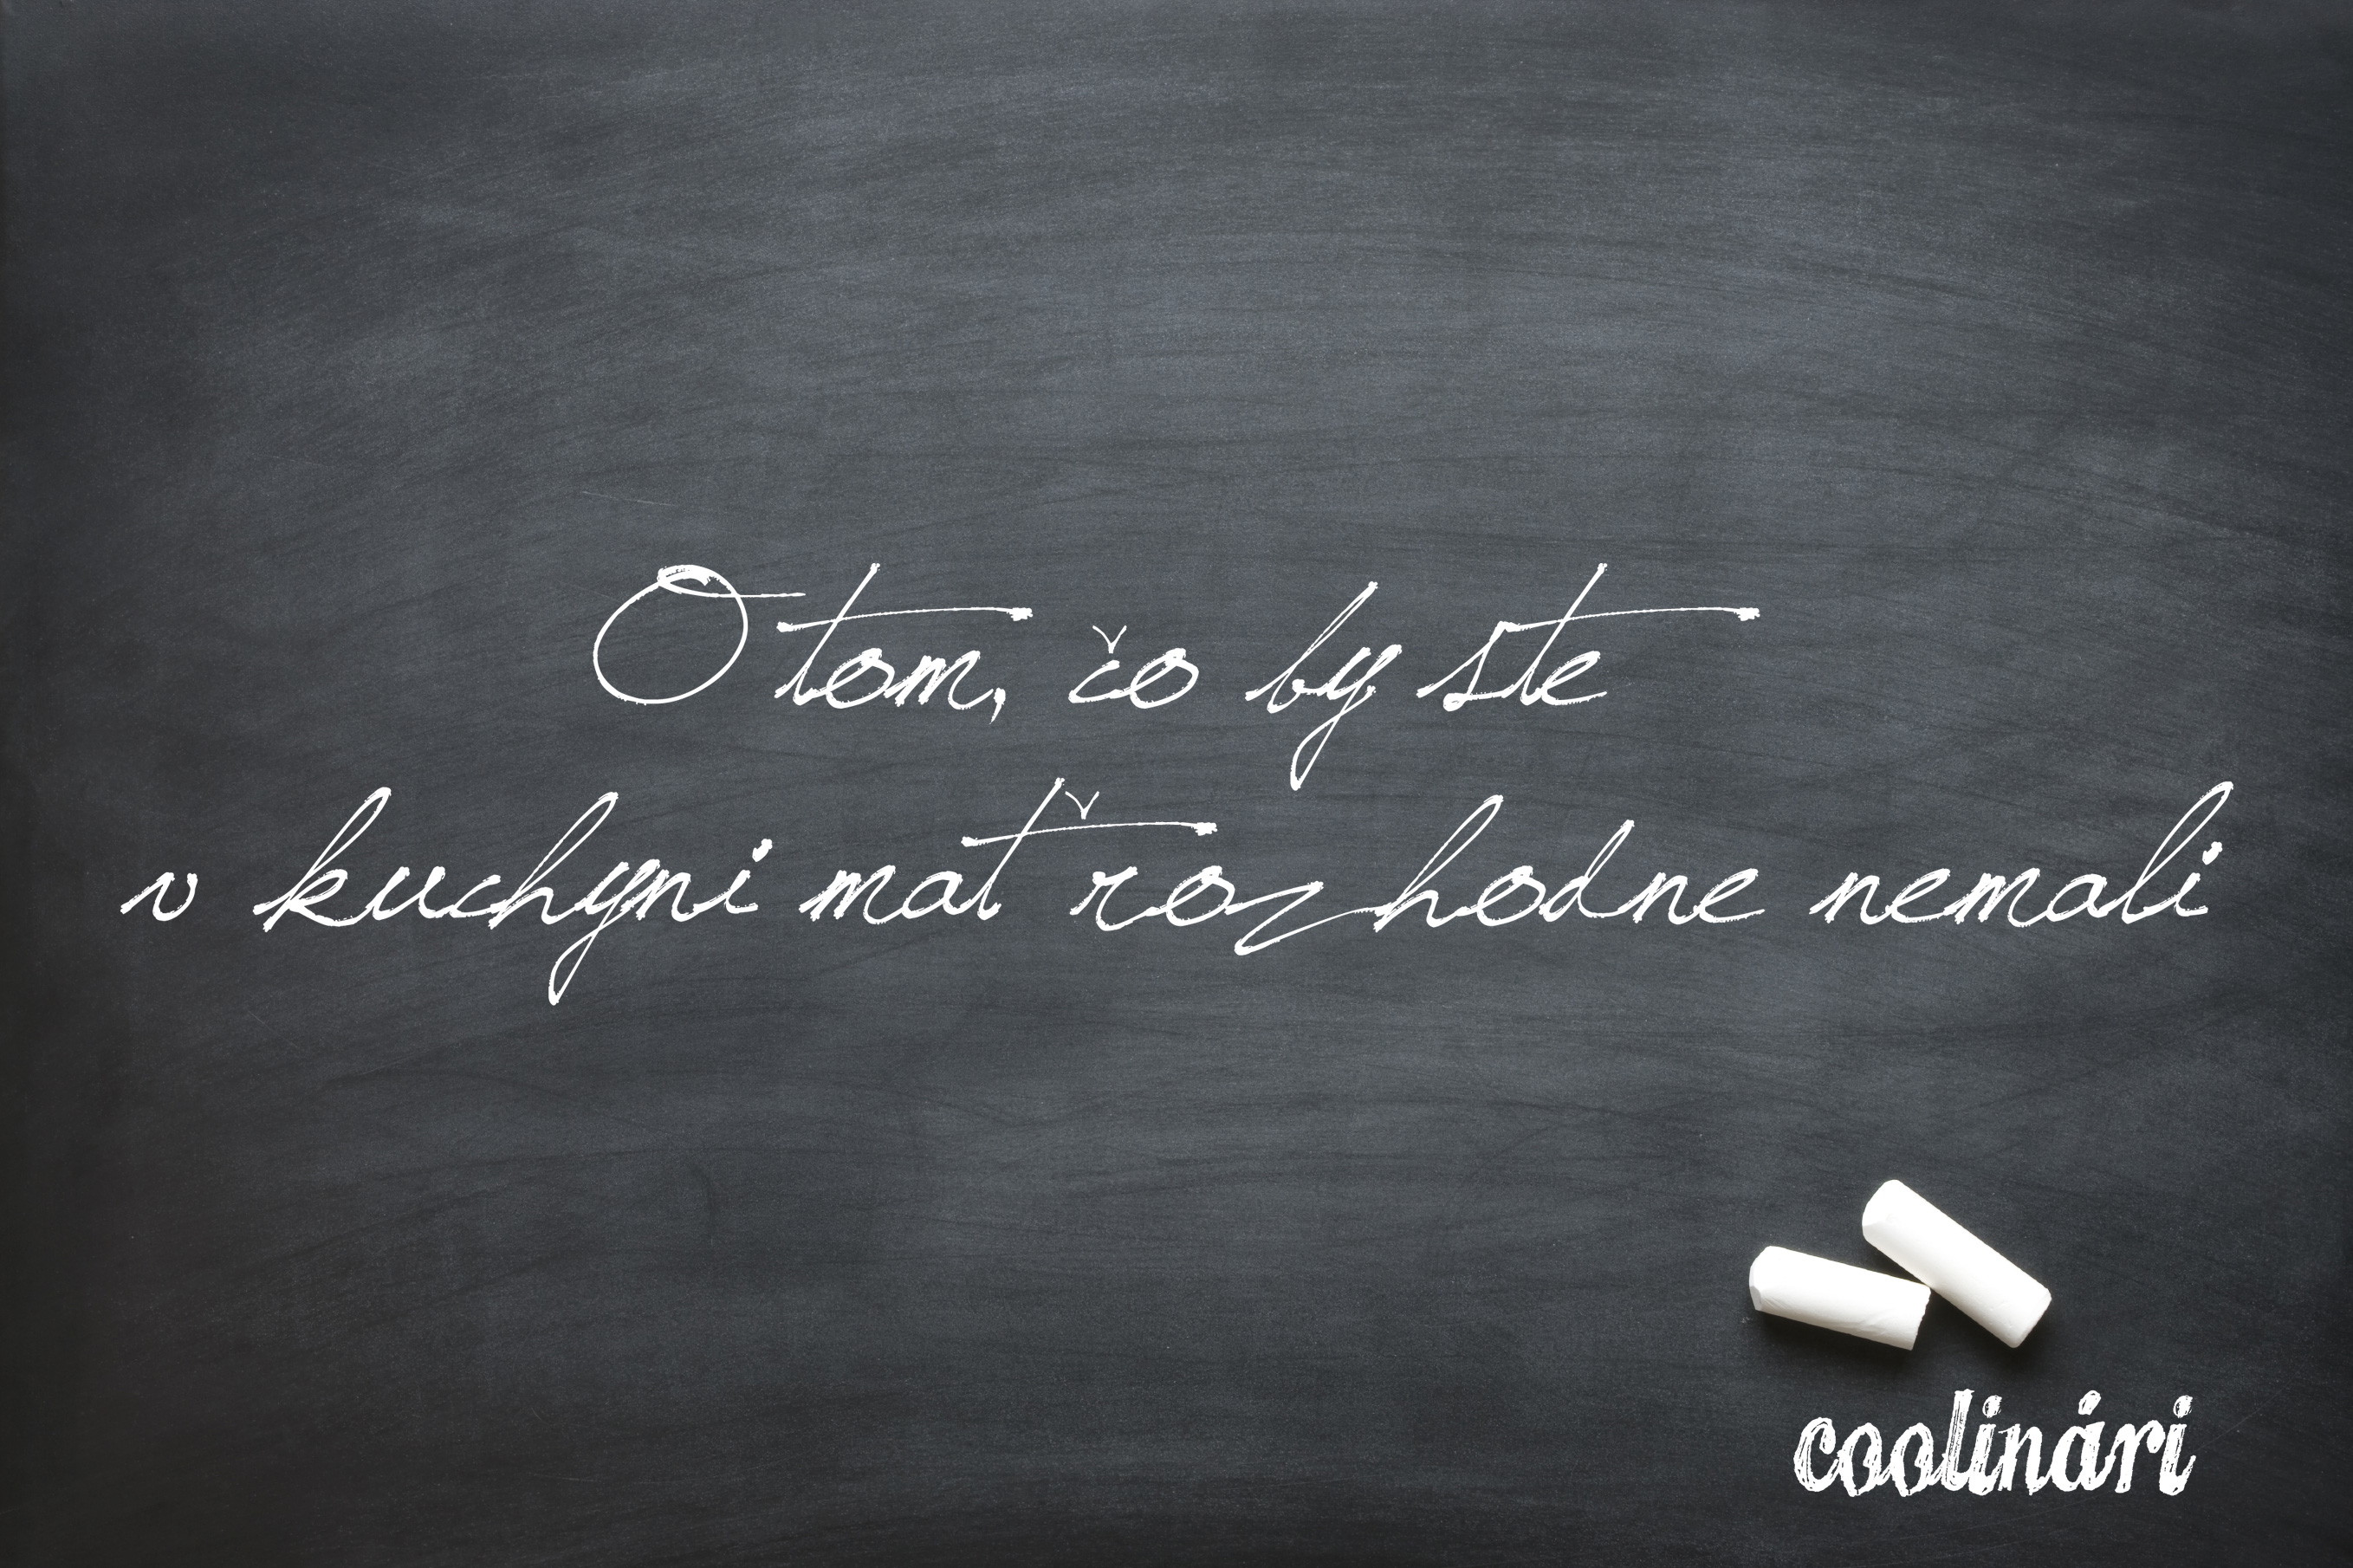 O tom, čo by ste
v kuchyni mať rozhodne nemali
coolinári